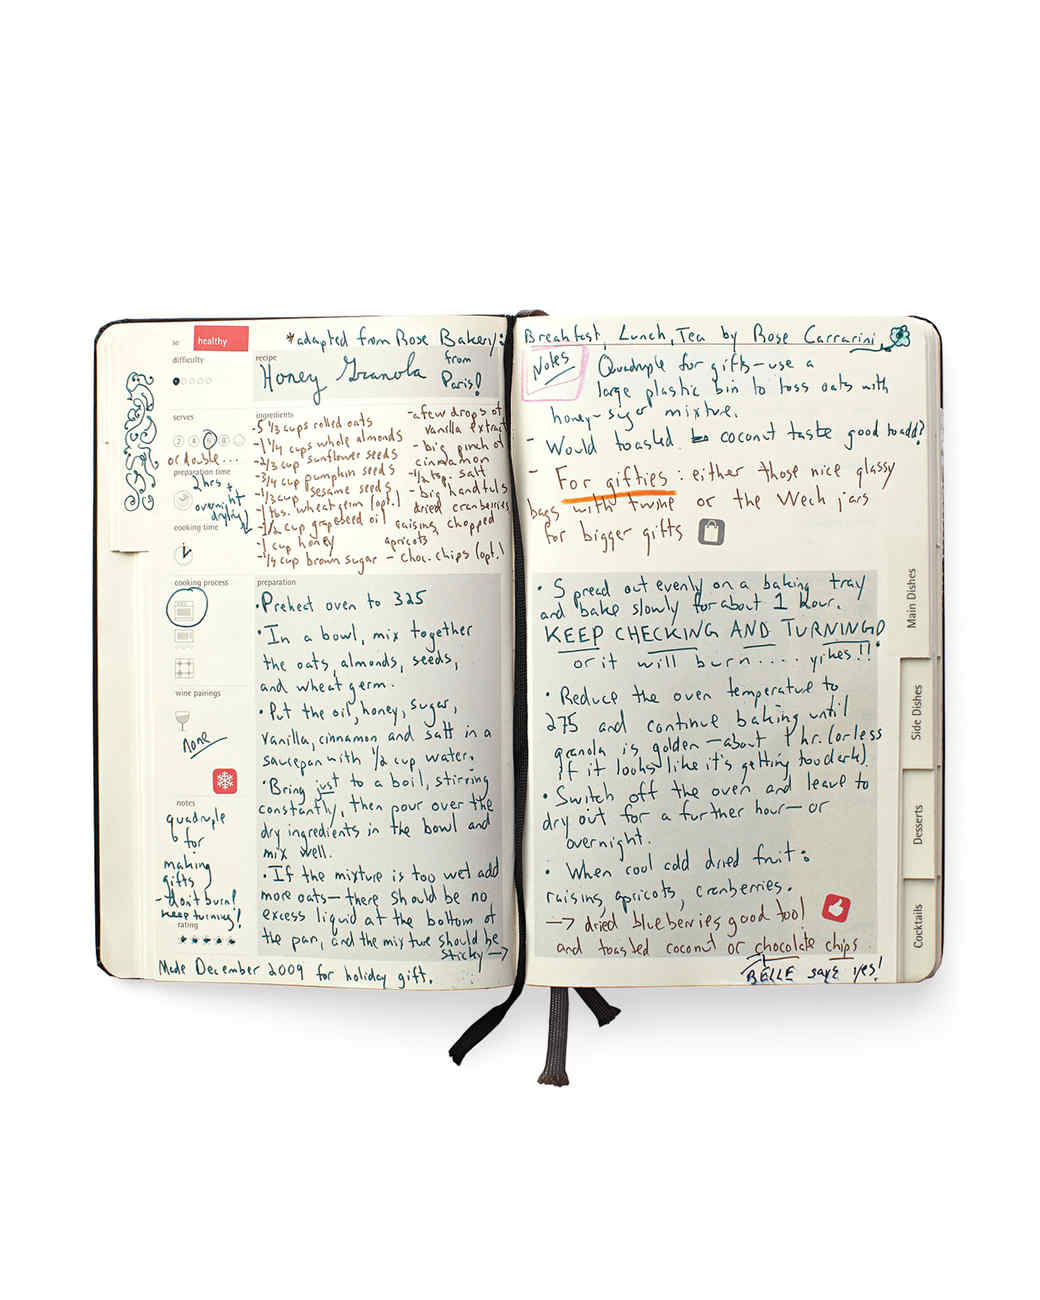 se
healthy
*adapted from Rose Bakery:
difficulty
recipe
Honey Granola
from
Paris!
serves
2 4 6 8
or double...
preparation time
2hrs +
overnight
drying
cooking time
ingredients
-5 1/3 cups rolled oats
-1 1/4 cups whole almonds
-2/3 cup sunflower seeds
-3/4 cup pumpkin seeds
-1/3 cup sesame seeds
-1 tbs. wheat germ (opt.)
-1/2 cup grapeseed oil
-1 cup honey
brown sugar
-a few drops of
vanilla extract
- big pinch of
cinnamon
-1/2 tsp. salt
- big handfuls
dried cranberries
raising, chopped
apricots
- choc. chips (opt.)
cooking process
wine pairings
none
notes
quadruple
for
making
gifts
- don't burn!
keep turning!
rating
preparation
• Preheat oven to 325
• In a bowl, mix together
the oats, almonds, seeds,
and wheat germ.
• Put the oil, honey, sugar,
vanilla, cinnamon and salt in a
saucepan with 1/2 cup water.
• Bring just to a boil, stirring
constantly, then pour over the
dry ingredients in the bowl and
mix well.
• If the mixture is too wet add
more oats—there should be no
excess liquid at the bottom of
the pan, and the mixture should be
sticky →
Made December 2009 for holiday gift.
Breakfast, Lunch, Tea by Rose Carrarini
Notes
Quadruple for gifts—use a
large plastic bin to toss oats with
honey-sugar mixture.
- Would toasted coconut taste good to add?
- For gifties: either those nice glassy
bags with twine or the Weck jars
for bigger gifts
• Spread out evenly on a baking tray
and bake slowly for about 1 hour.
KEEP CHECKING AND TURNING
or it will burn.... yikes!!
• Reduce the oven temperature to
275 and continue baking until
granola is golden—about 1 hr. (or less
if it looks like it's getting too dark)
• Switch off the oven and leave to
dry out for a further hour—or
overnight.
• When cool add dried fruit:
raisins, apricots, cranberries.
→ dried blueberries good too!
and toasted coconut or chocolate chips
BELLE says yes!
Main Dishes
Side Dishes
Desserts
Cocktails